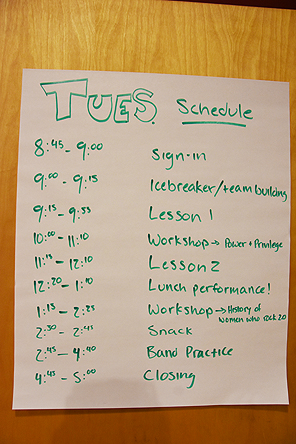 TUES. Schedule
8:45 - 9:00 Sign-in
9:00 - 9:15 Icebreaker/team building
9:15 - 9:55 Lesson 1
10:00 - 11:10 Workshop → Power + Privilege
11:15 - 12:10 Lesson 2
12:20 - 1:10 Lunch performance!
1:15 - 2:25 Workshop → History of
women who rock 2.0
2:30 - 2:45 Snack
2:45 - 4:40 Band Practice
4:45 - 5:00 Closing